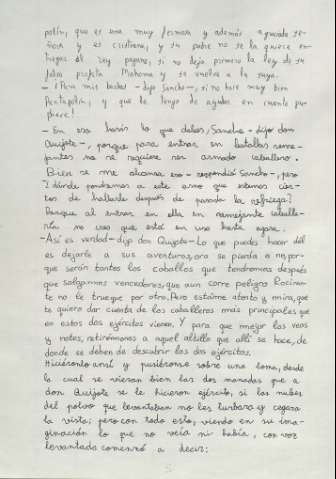 polín, que es una muy fermosa y además agraciada se-
ñora y es cristiana, y su padre no se la quiere en-
tregar al rey pagano, si no deja primero la ley de su
falso profeta Mahoma y se vuelve a la suya.
- ¡Para mis barbas - dijo Sancho -, si no hace muy bien
Pentapolín, y que le tengo de ayudar en cuanto pu-
diere!
- En eso harás lo que debes, Sancho - dijo don
Quijote -, porque para entrar en batallas seme-
jantes no se requiere ser armado caballero.
Bien se me alcanza eso - respondió Sancho -, pero
¿dónde pondremos a este asno que estemos cier-
tos de hallarle después de pasada la refriega?
Porque el entrar en ella en semejante caballe-
ría no creo que esté en uso hasta agora.
- Así es verdad - dijo don Quijote - Lo que puedes hacer dél
es dejarle a sus aventuras, ora se pierda o no, por-
que serán tantos los caballos que tendremos después
que salgamos vencedores, que aun corre peligro Rocinan-
te no le trueque por otro. Pero estáme atento y mira, que
te quiero dar cuenta de los caballeros más principales que
en estos dos ejércitos vienen. Y para que mejor los veas
y notes, retirémonos a aquel altillo que allí se hace, de
donde se deben de descubrir los dos ejércitos.
Hiciéronlo ansí y pusiéronse sobre una loma, desde
la cual se vieran bien las dos manadas que a
don Quijote se le hicieron ejército, si las nubes
del polvo que levantaban no les turbara y cegara
la vista; pero con todo esto, viendo en su ima-
ginación lo que no veía ni había, con voz
levantada comenzó a decir:
5